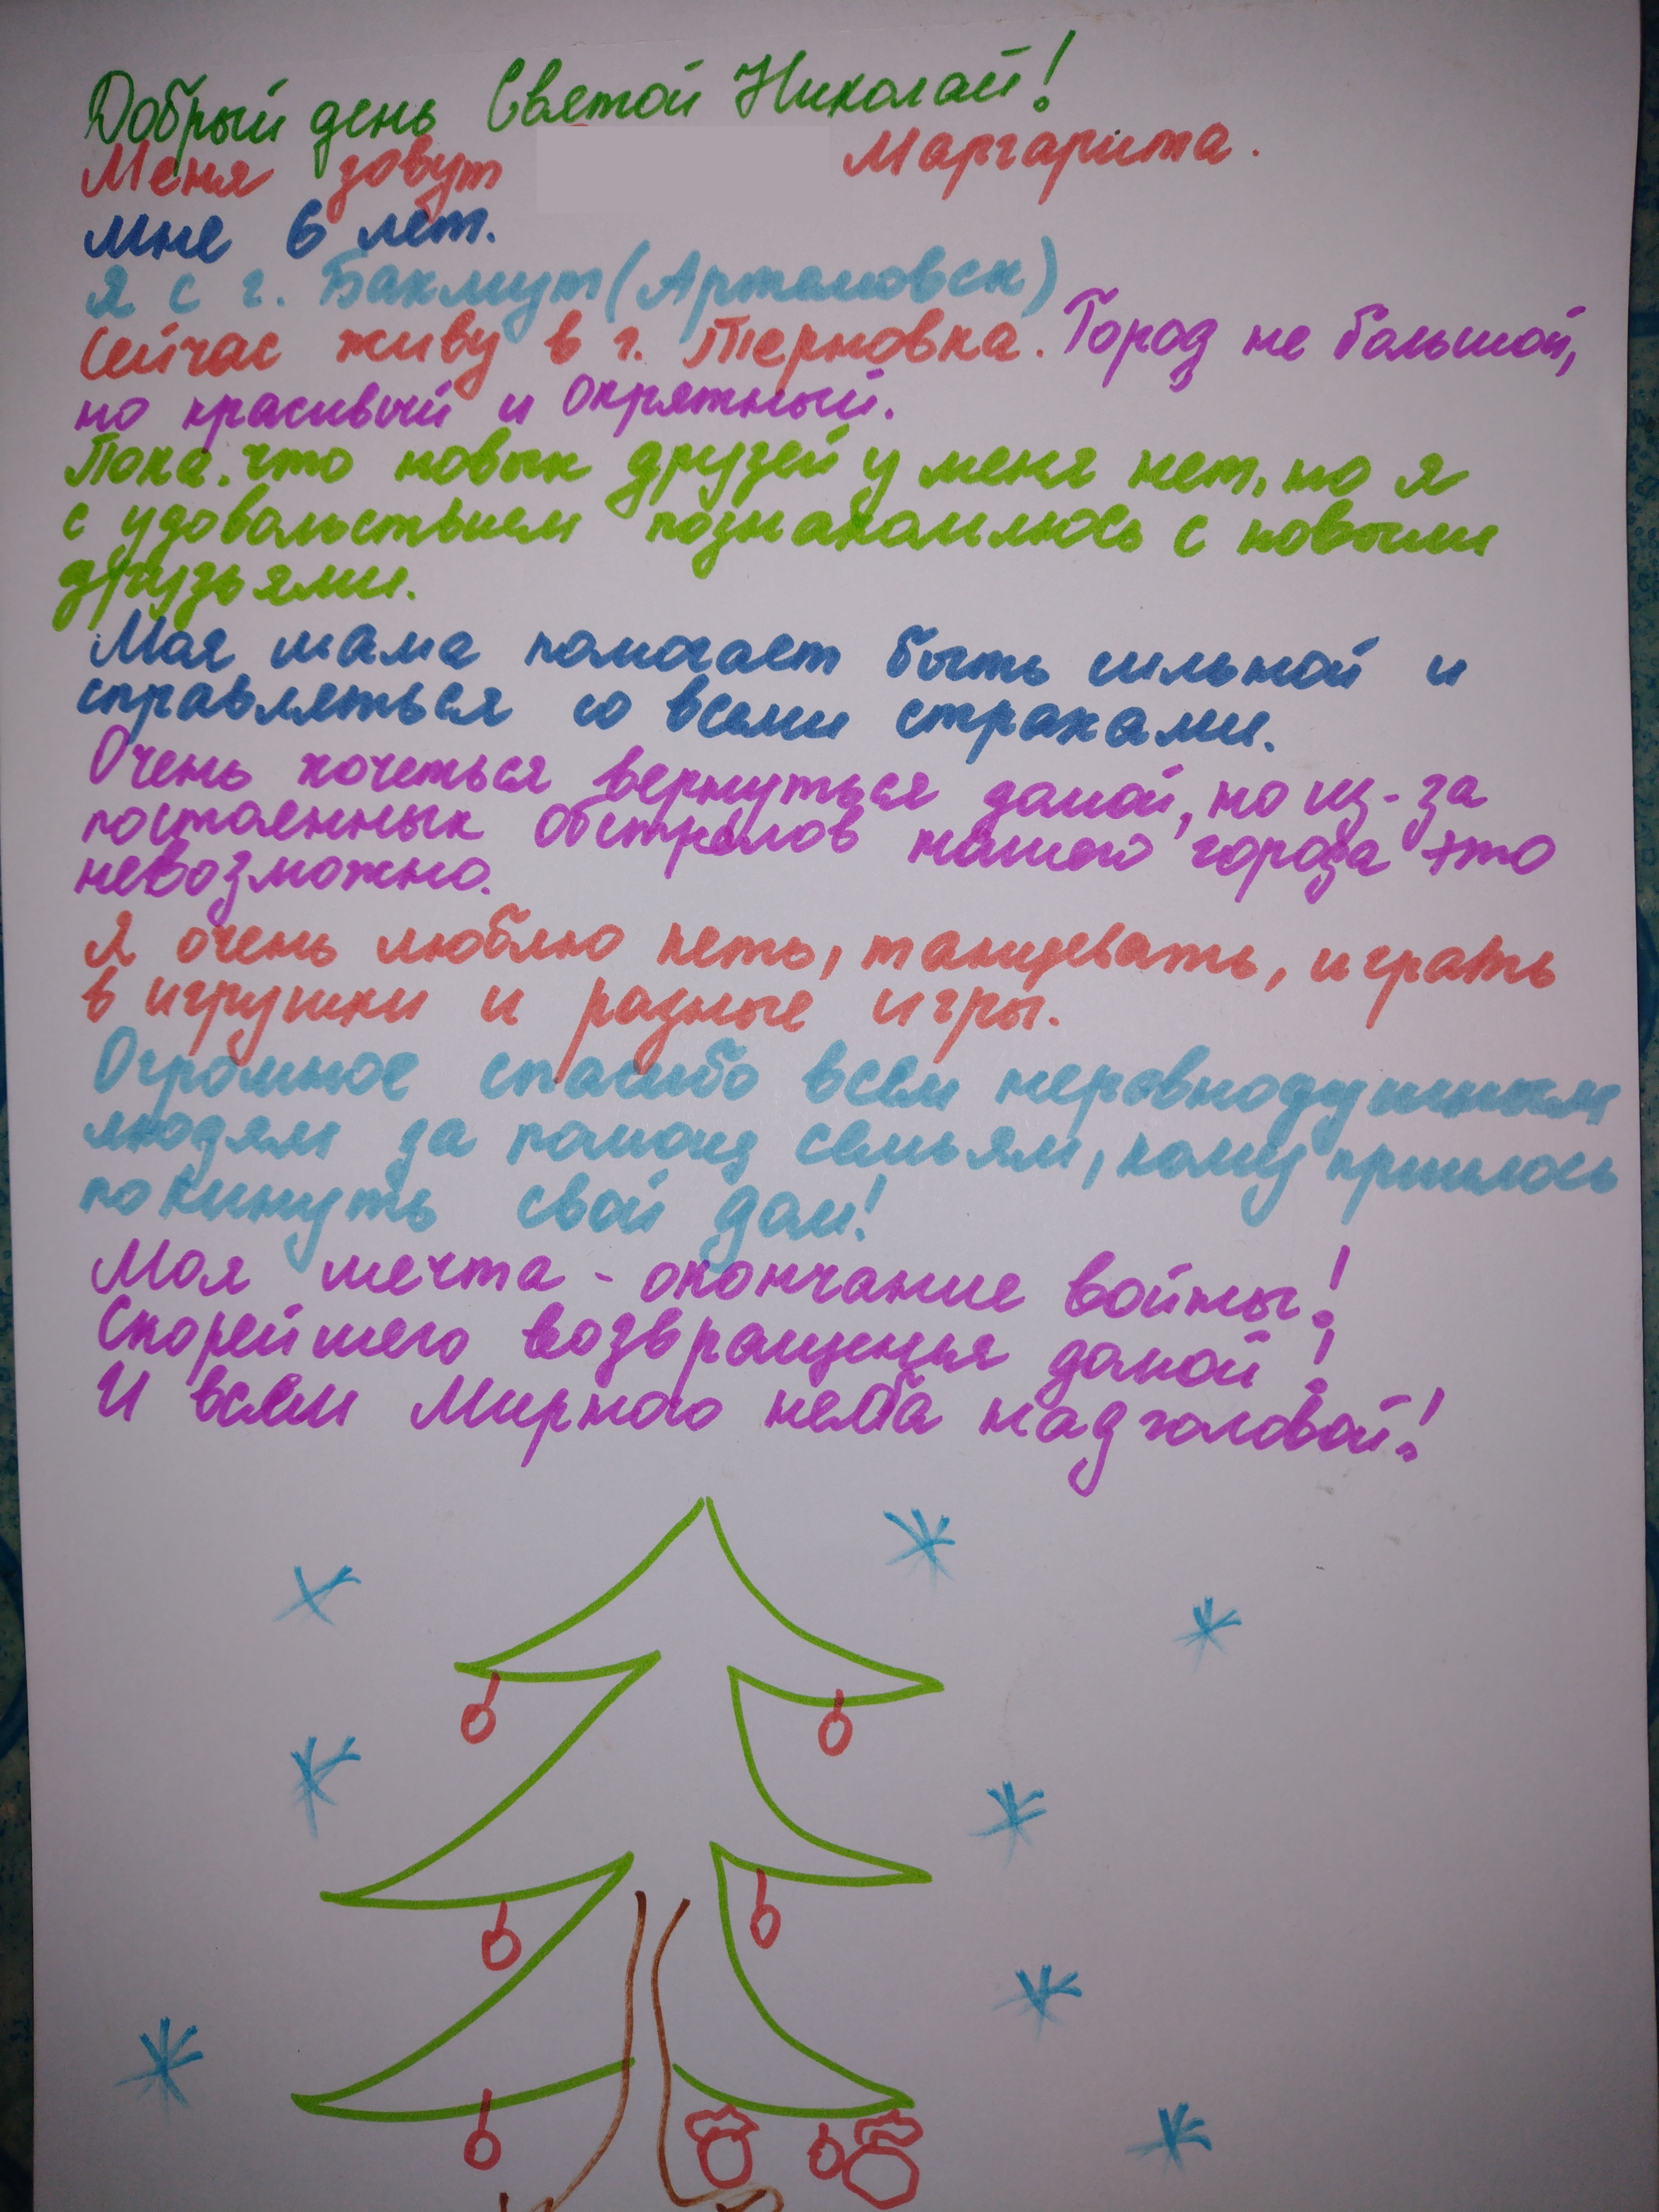 Добрый день Святой Николай!
Меня зовут Маргарита.
Мне 6 лет.
Я с г. Бахмут (Артемовск)
Сейчас живу в г. Терновка. Город не большой,
но красивый и опрятный.
Пока что новых друзей у меня нет, но я
с удовольствием познакомлюсь с новыми
друзьями.
Моя мама помогает быть сильной и
справляться со всеми страхами.
Очень хочеться вернуться домой, но из-за
постоянных обстрелов нашего города это
невозможно.
Я очень люблю петь, танцевать, играть
в игрушки и разные игры.
Огромное спасибо всем неравнодушным
людям за помощ семьям, кому пришлось
покинуть свой дом!
Моя мечта - окончание войны!
Скорейшего возвращенья домой!
И всем Мирного неба над головой!